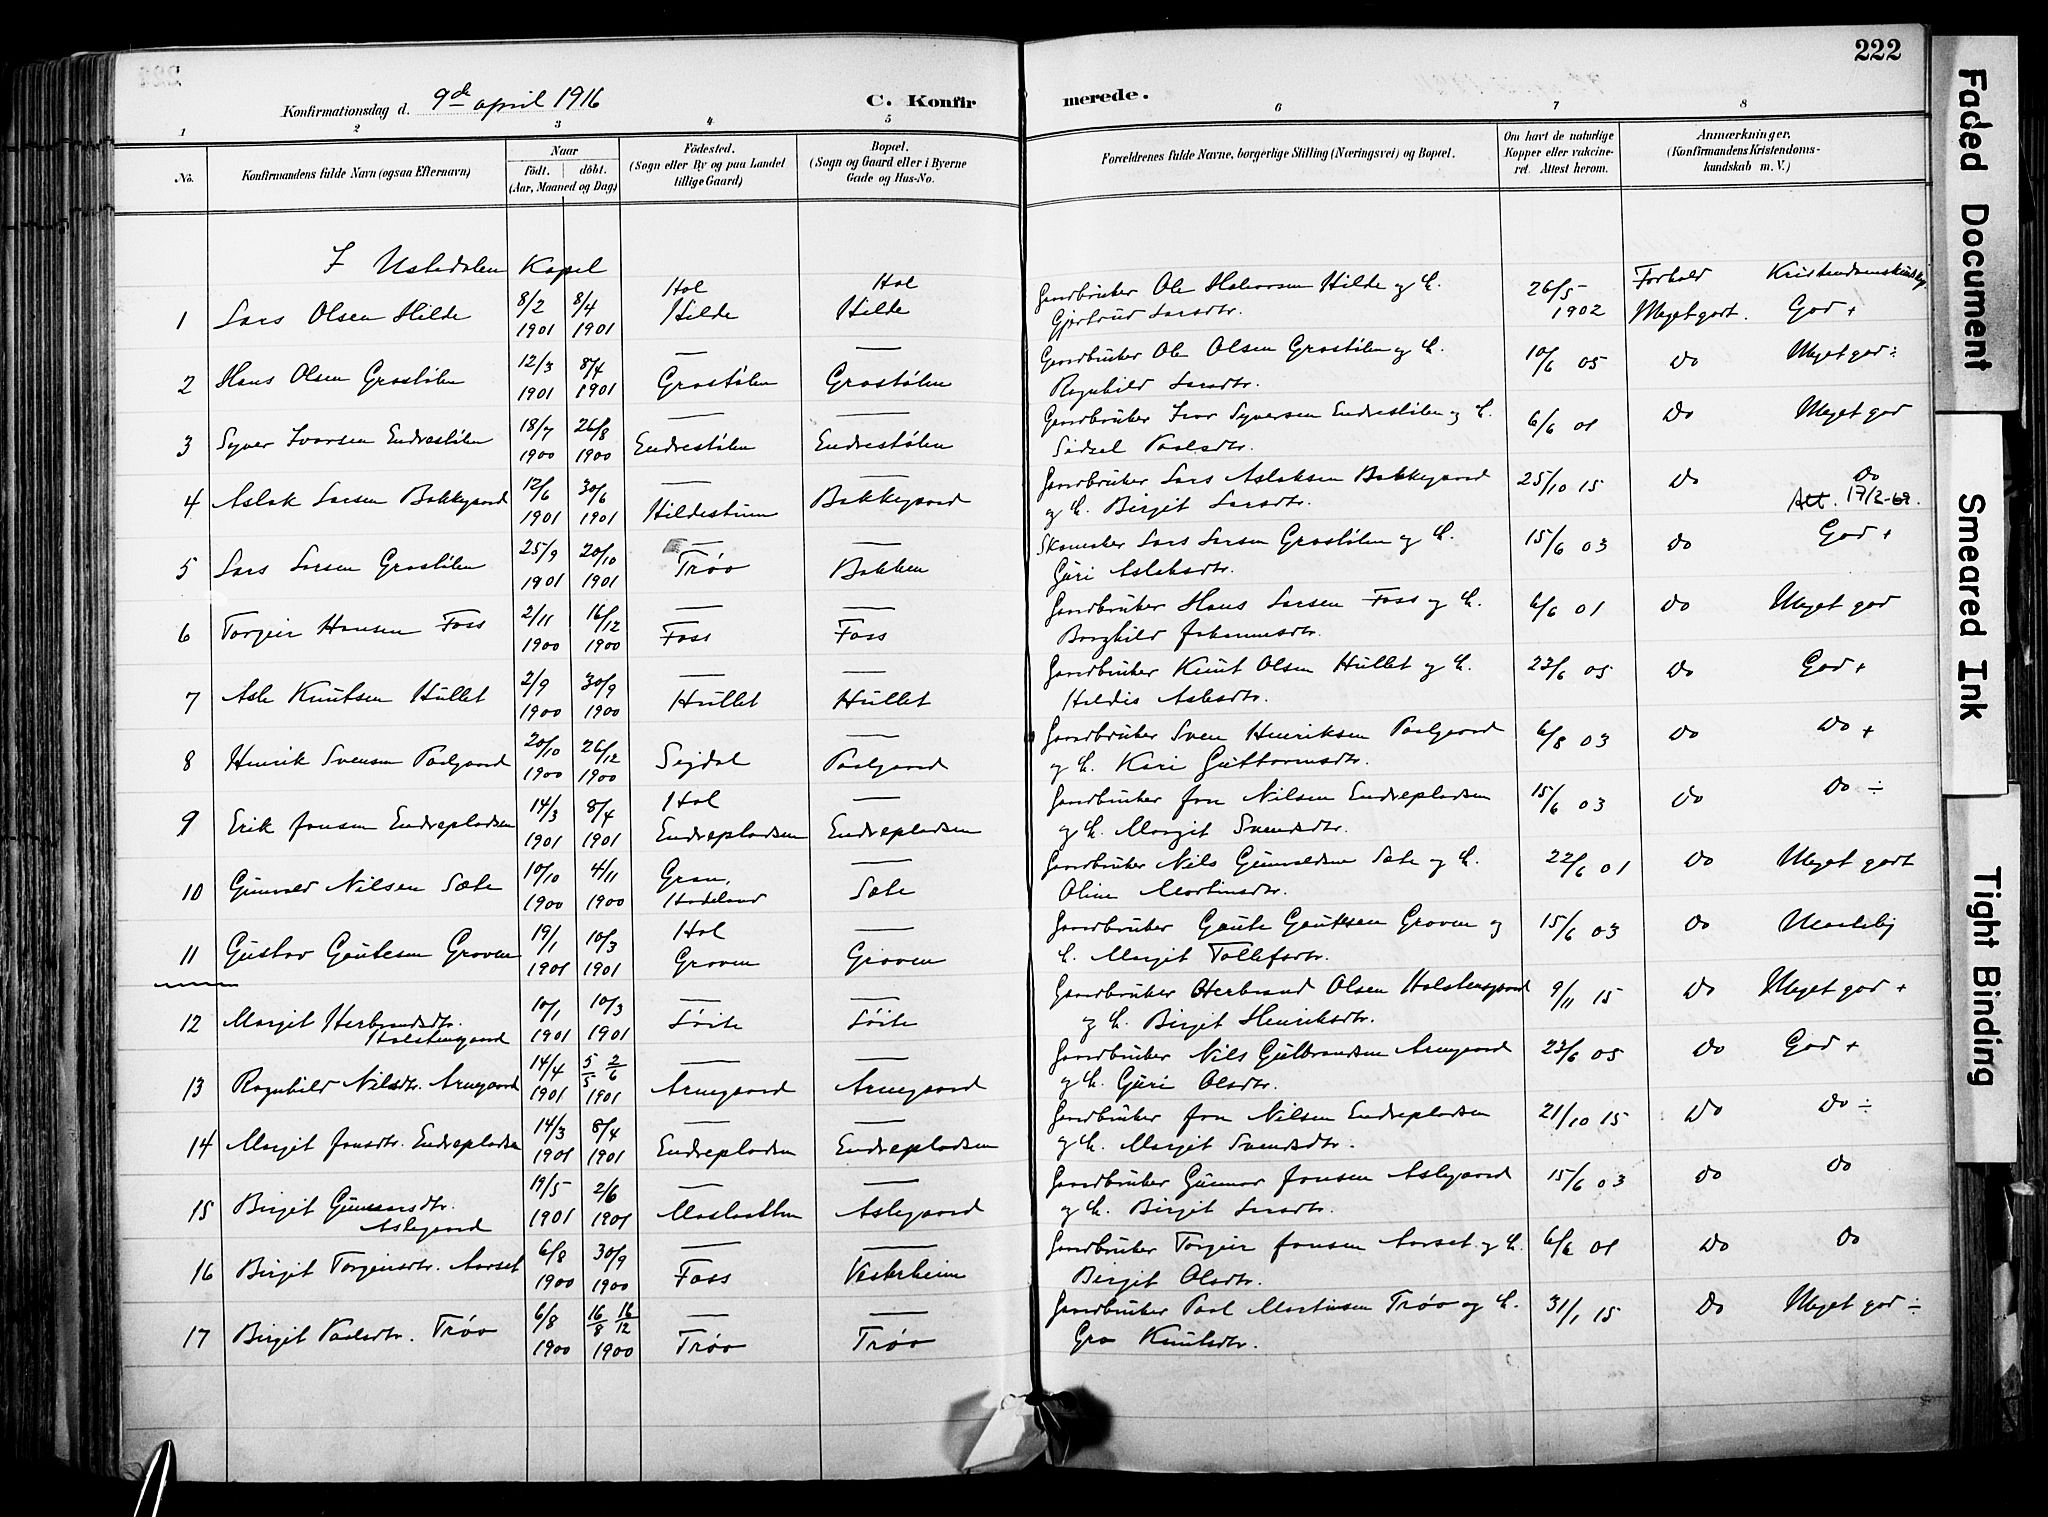 222
Konfirmationsdag d. 9de april 1916
C. Konfirmerede.
1 2 3 4 5 6 7 8
No.
Konfirmandens fulde Navn (ogsaa Efternavn)
Naar
født. døbt.
(Aar, Maaned og Dag)
Fødested.
(Sogn eller By og paa Landet
tillige Gaard)
Bopæl.
(Sogn og Gaard eller i Byerne
Gade og Hus-No.
Forældrenes fulde Navne, borgerlige Stilling (Næringsvei) og Bopæl.
Om havt de naturlige
Kopper eller vakcineret. Attest herom.
Anmærkninger.
(Konfirmandens Kristendomskundskab m. V.)
I Ustedalen Kapel
Forhold Kristendomskundskap
1 Lars Olsen Hilde 8/2 1901 8/4 1901 Hol Hilde Hol Hilde Gardbruker Ole Halvorsen Hilde og h. Gjertrud Larsdtr. 26/5 1902 Meget godt. God +
2 Hans Olsen Grostølen 12/3 1901 8/4 1901 — Grostølen — Grostølen Gardbruker Ole Olsen Grostølen og h. Ragnhild Larsdtr. 10/6 05 Do Meget god ÷
3 Syver Ivarsen Endrestølen 18/7 1900 26/8 1900 — Endrestølen — Endrestølen Gardbruker Ivar Syversen Endrestølen og h. Sidsel Paalsdtr. 6/6 01 Do Meget god
4 Aslak Larsen Bakkegaard 12/6 1901 30/6 1901 — Hildestuen — Bakkegaard Gardbruker Lars Aslaksen Bakkegaard og h. Birgit Larsdtr. 25/10 15 Do Do
Att. 17/2-69.
5 Lars Larsen Grostølen 25/9 1901 20/10 1901 — Trøo — Bakken Skomaker Lars Larsen Grostølen og h. Guri Aslaksdtr. 15/6 03 Do God +
6 Torgeir Hansen Foss 2/11 1900 16/12 1900 — Foss — Foss Gardbruker Hans Larsen Foss og h. Borghild Johannesdtr. 6/6 01 Do Meget god
7 Asle Knutsen Hullet 2/9 1900 30/9 1900 — Hullet — Hullet Gardbruker Knut Olsen Hullet og h. Haldis Aslesdtr. 23/6 05 Do God +
8 Henrik Svensen Paalgaard 20/10 1900 26/12 1900 Sigdal — Paalgaard Gardbruker Sven Henriksen Paalgaard og h. Kari Guttormsdtr. 6/8 03 Do Do +
9 Erik Jonsen Endrepladsen 14/3 1901 8/4 1901 Hol Endrepladsen — Endrepladsen Gardbruker Jon Nilsen Endrepladsen og h. Margit Svendsdtr. 15/6 03 Do Do ÷
10 Gunvald Nilsen Sæte 10/10 1900 4/11 1900 Gran, Hadeland — Sæte Gardbruker Nils Gunvaldsen Sæte og h. Oline Martinsdtr. 22/6 01 Do Meget godt
11 Gustav Gautesen Groven 19/1 1901 10/3 1901 Hol Groven — Groven Gardbruker Gaute Gautesen Groven og h. Margit Tollefsdtr. 15/6 03 Do
12 Margit Herbrandsdtr. Holstengaard 10/1 1901 10/3 1901 — — Gardbruker Herbrand Olsen Holstensgaard og h. Birgit Henriksdtr. 9/11 15 Do Meget god +
13 Ragnhild Nilsdtr. Arnegaard 14/4 1901 5/5 2/6 1901 — Arnegaard — Arnegaard Gardbruker Nils Gulbrandsen Arnegaard og h. Guri Olsdtr. 23/6 05 Do God +
14 Margit Jonsdtr. Endrepladsen 14/3 1901 8/4 1901 — Endrepladsen — Endrepladsen Gardbruker Jon Nilsen Endrepladsen og h. Margit Svendsdtr. 21/10 15 Do Do ÷
15 Birgit Gunnarsdtr. Aslegaard 19/5 1901 2/6 1901 — — Aslegaard Gardbruker Gunnar Jonsen Aslegaard og h. Birgit Larsdtr. 15/6 03 Do Do
16 Birgit Torgeirsdtr. Aarset 6/8 1900 30/9 1900 — Foss — Vesterheim Gardbruker Torgeir Jonsen Aarset og h. Birgit Olsdtr. 6/6 01 Do Do
17 Birgit Paalsdtr. Trøo 6/8 1900 16/8 16/12 1900 — Trøo — Trøo Gardbruker Paal Martinsen Trøo og h. Gro Knutsdtr. 31/1 15 Do Meget god ÷
Faded Document
Smeared Ink
Tight Binding